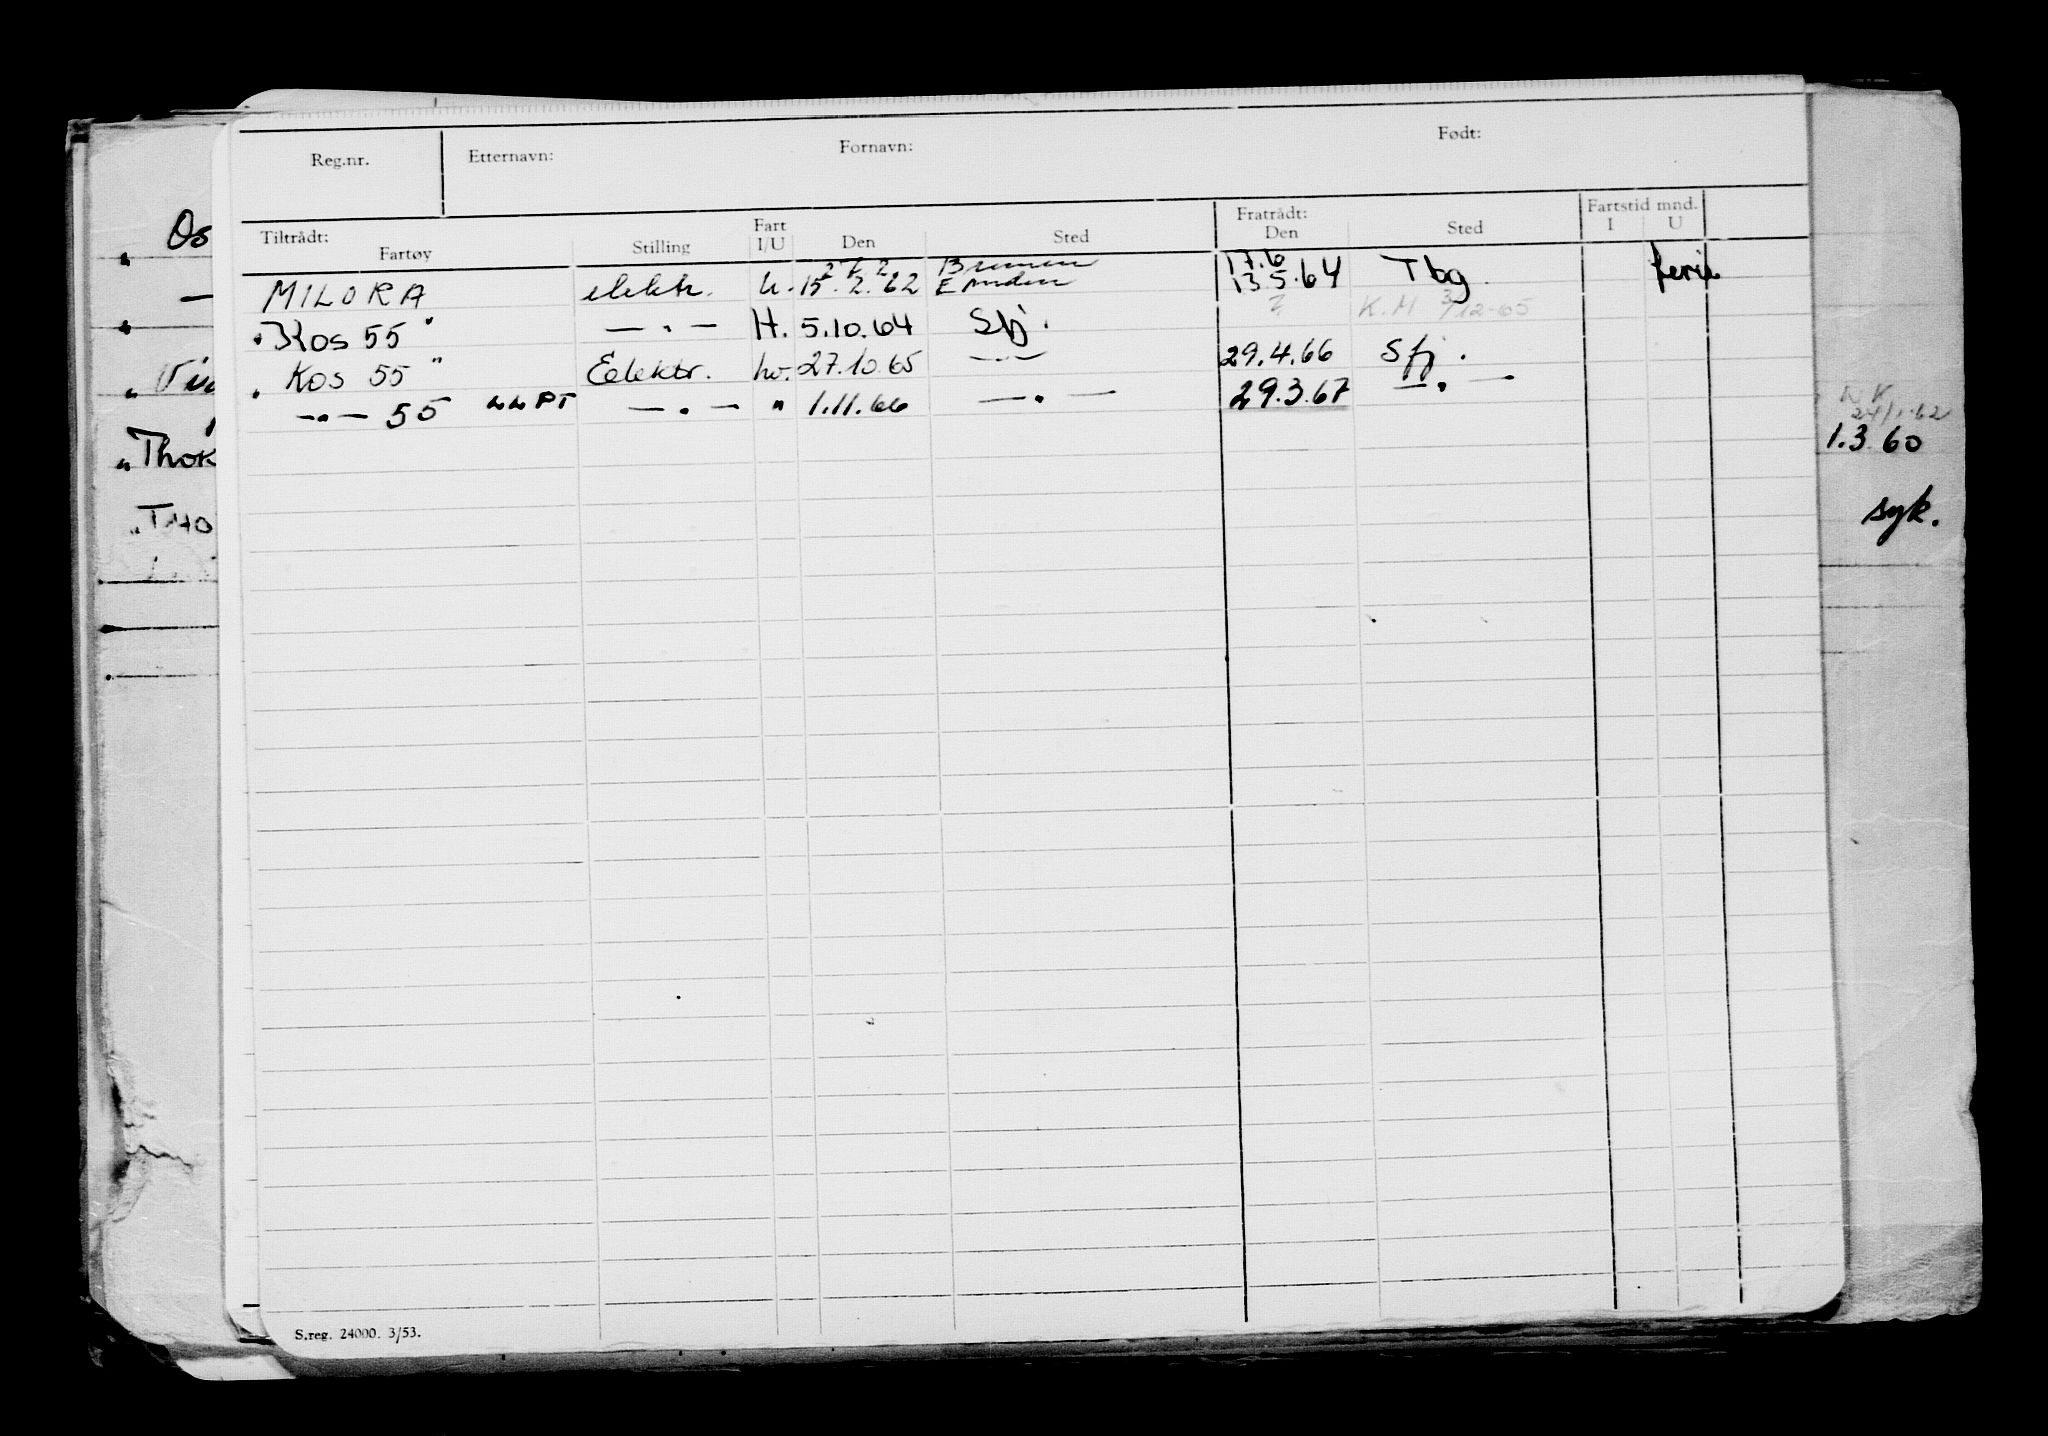 Reg.nr. Etternavn: Fornavn: Født:
Tiltrådt: Fartøy Stilling Fart I/U Den Sted Fratrådt: Den Sted Fartstid mnd. I U
27.2 Bremen 17.6
MILORA elektr. u. 15.2.62 Emden 13.5.64 Tbg. ferie
"Kos 55" — " — H. 5.10.64 Sfj. ? K.M 3/12-65
" Kos 55 " Elektr. hv. 27.10.65 — " — 29.4.66 Sfj.
— " — 55 — " — " 1.11.66 — " — 29.3.67 — " —
" Os
"Thor
24/1-62
1.3 60
syk.
S.reg. 24000. 3/53.